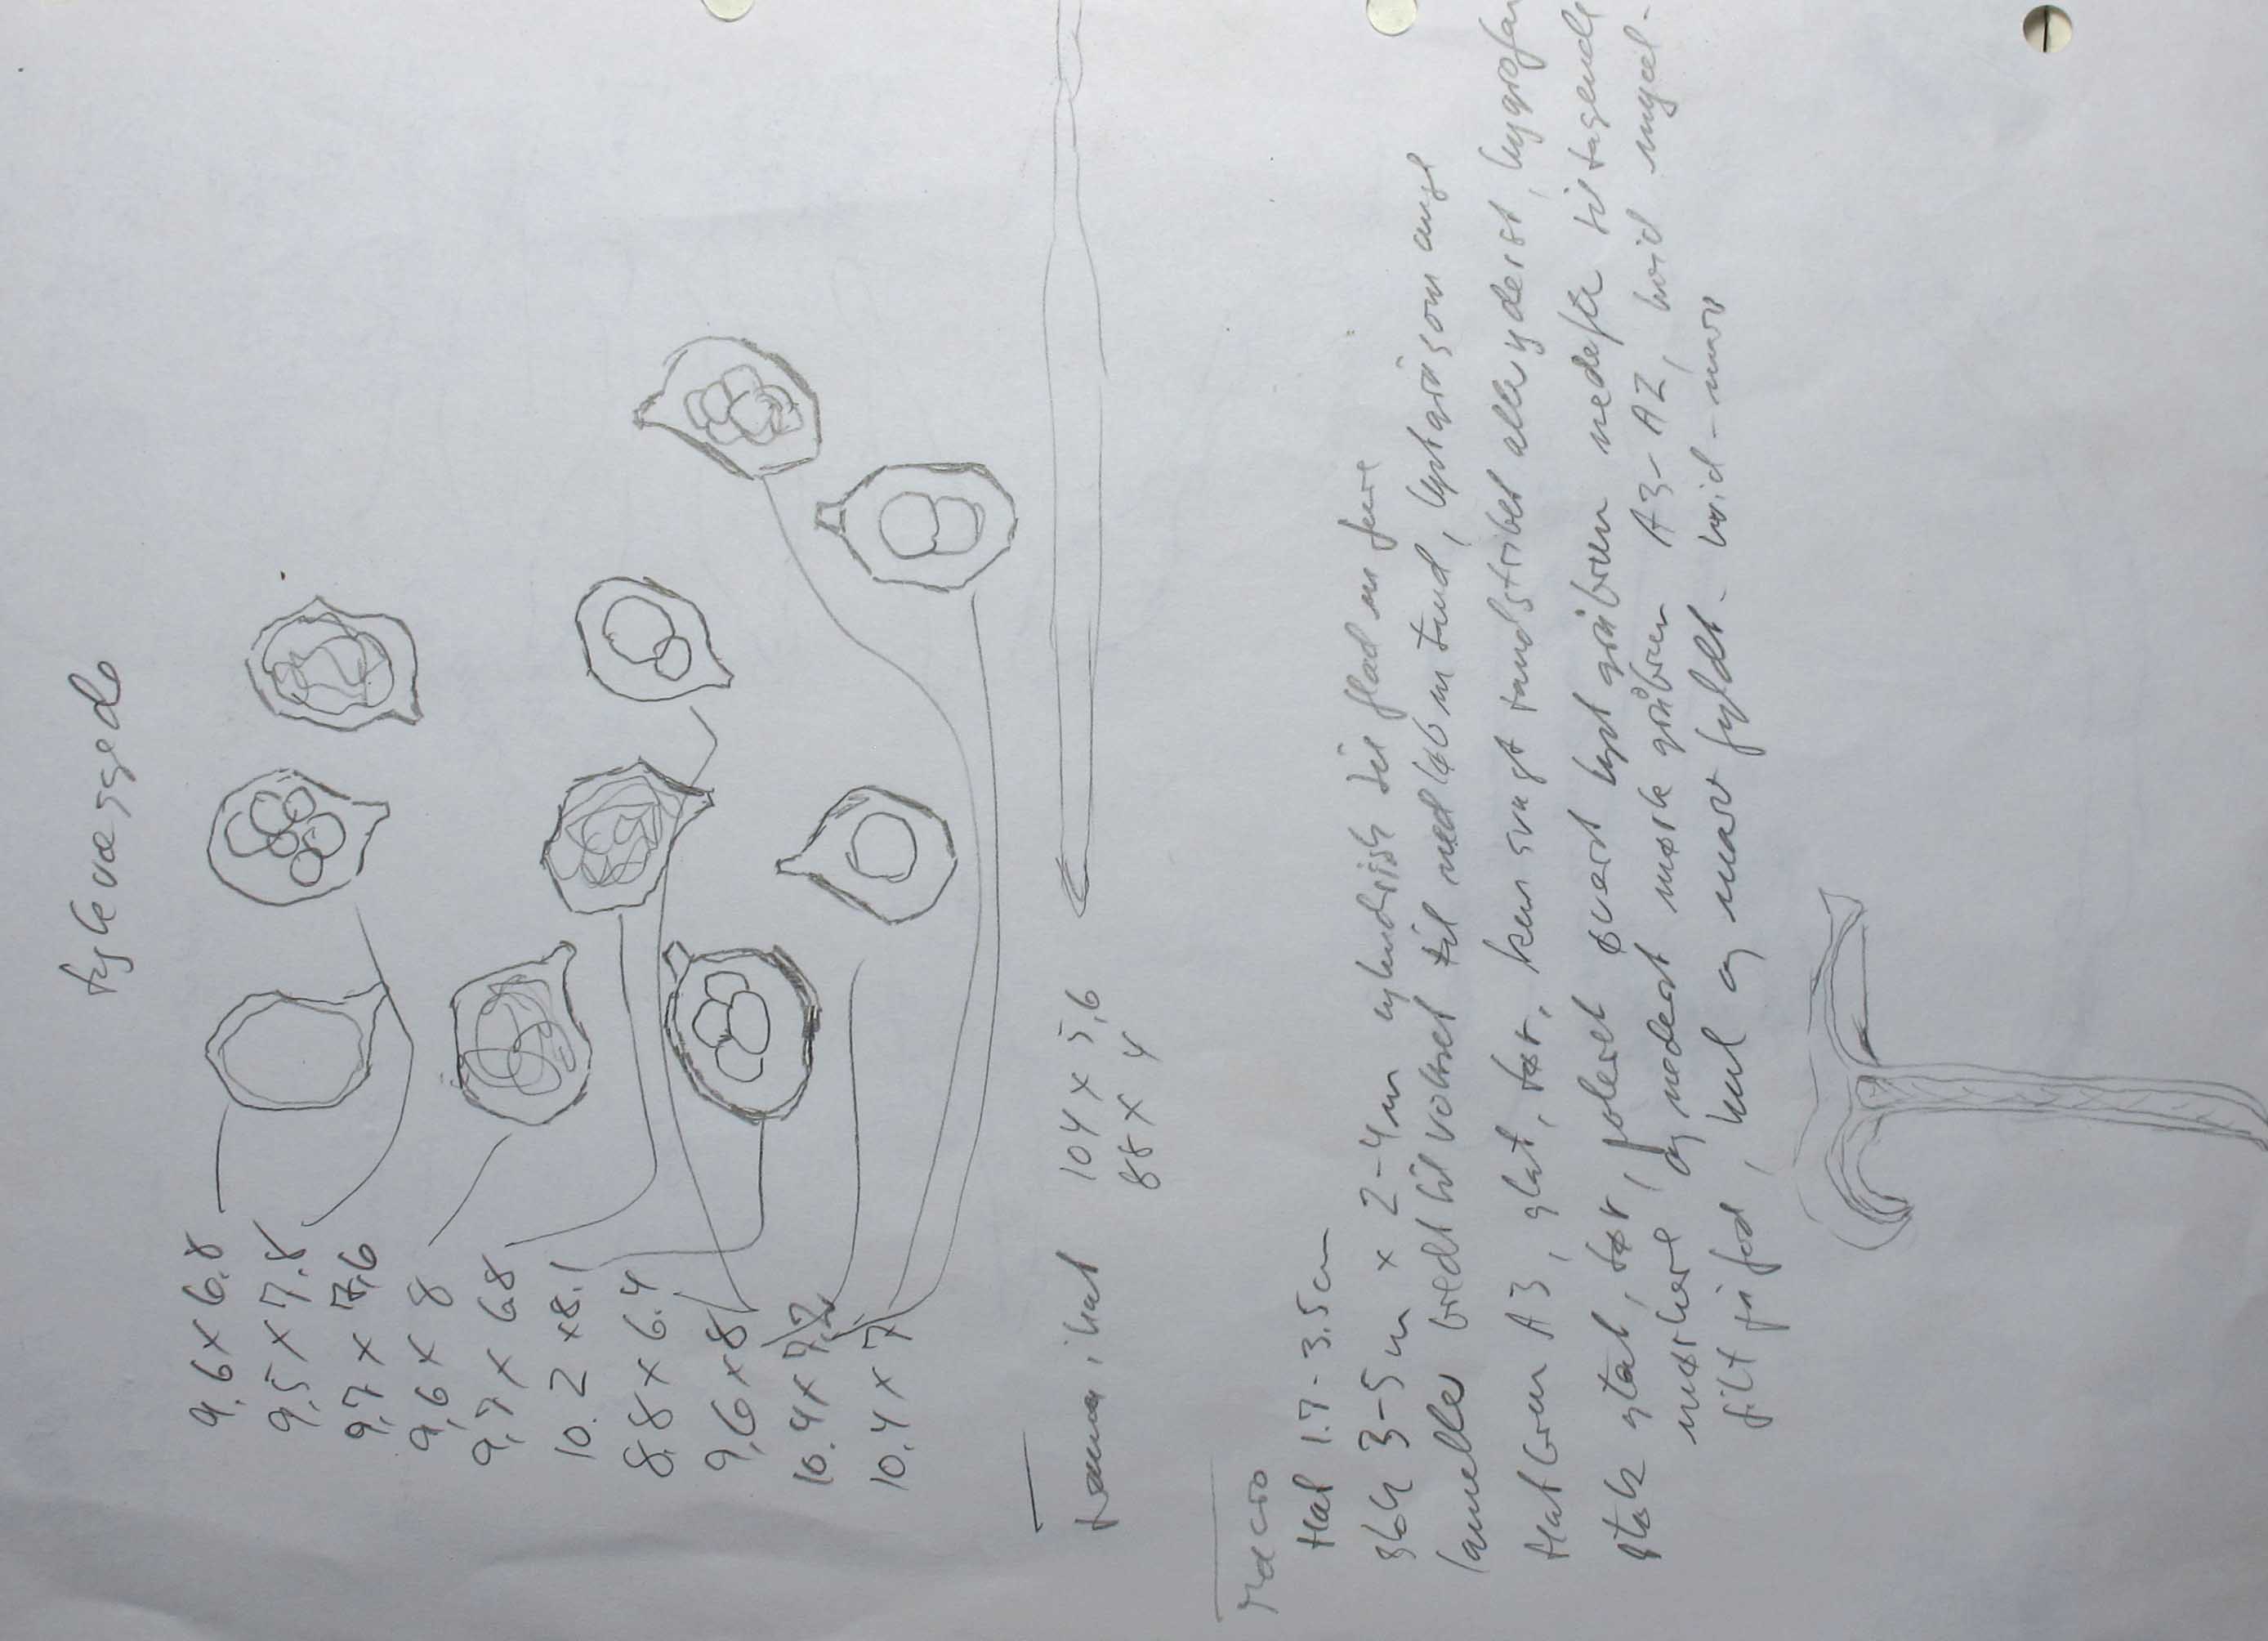 tykvæggede
9.6 x 6.8
9,5 x 7.8
9,7 x 7,6
9,6 x 8
9,7 x 6.8
10.2 x 8.1
8.8 x 6.4
9,6 x 8
10.4 x 7.2
10.4 x 7
trama i hat 104 x 5,6
88 x 4
Macro
Hat 1.7 - 3.5 cm
stok 3-5 cm x 2-4 m cylindrisk til flad m fure
lameller bredt tilvokset til nedløb m tand, lyshgrå som ung
Hat brun A3, glat, tør, kun svagt randstribet aller yderst, hygrofan
stok glat, tør, poleret øverst lyst gråbrun nedefter tiltagende
mørkere, og nederst mørk gråbrun A3-A2, hvid mycel-
filt på fod, hul og marv fyldt - hvid - marv